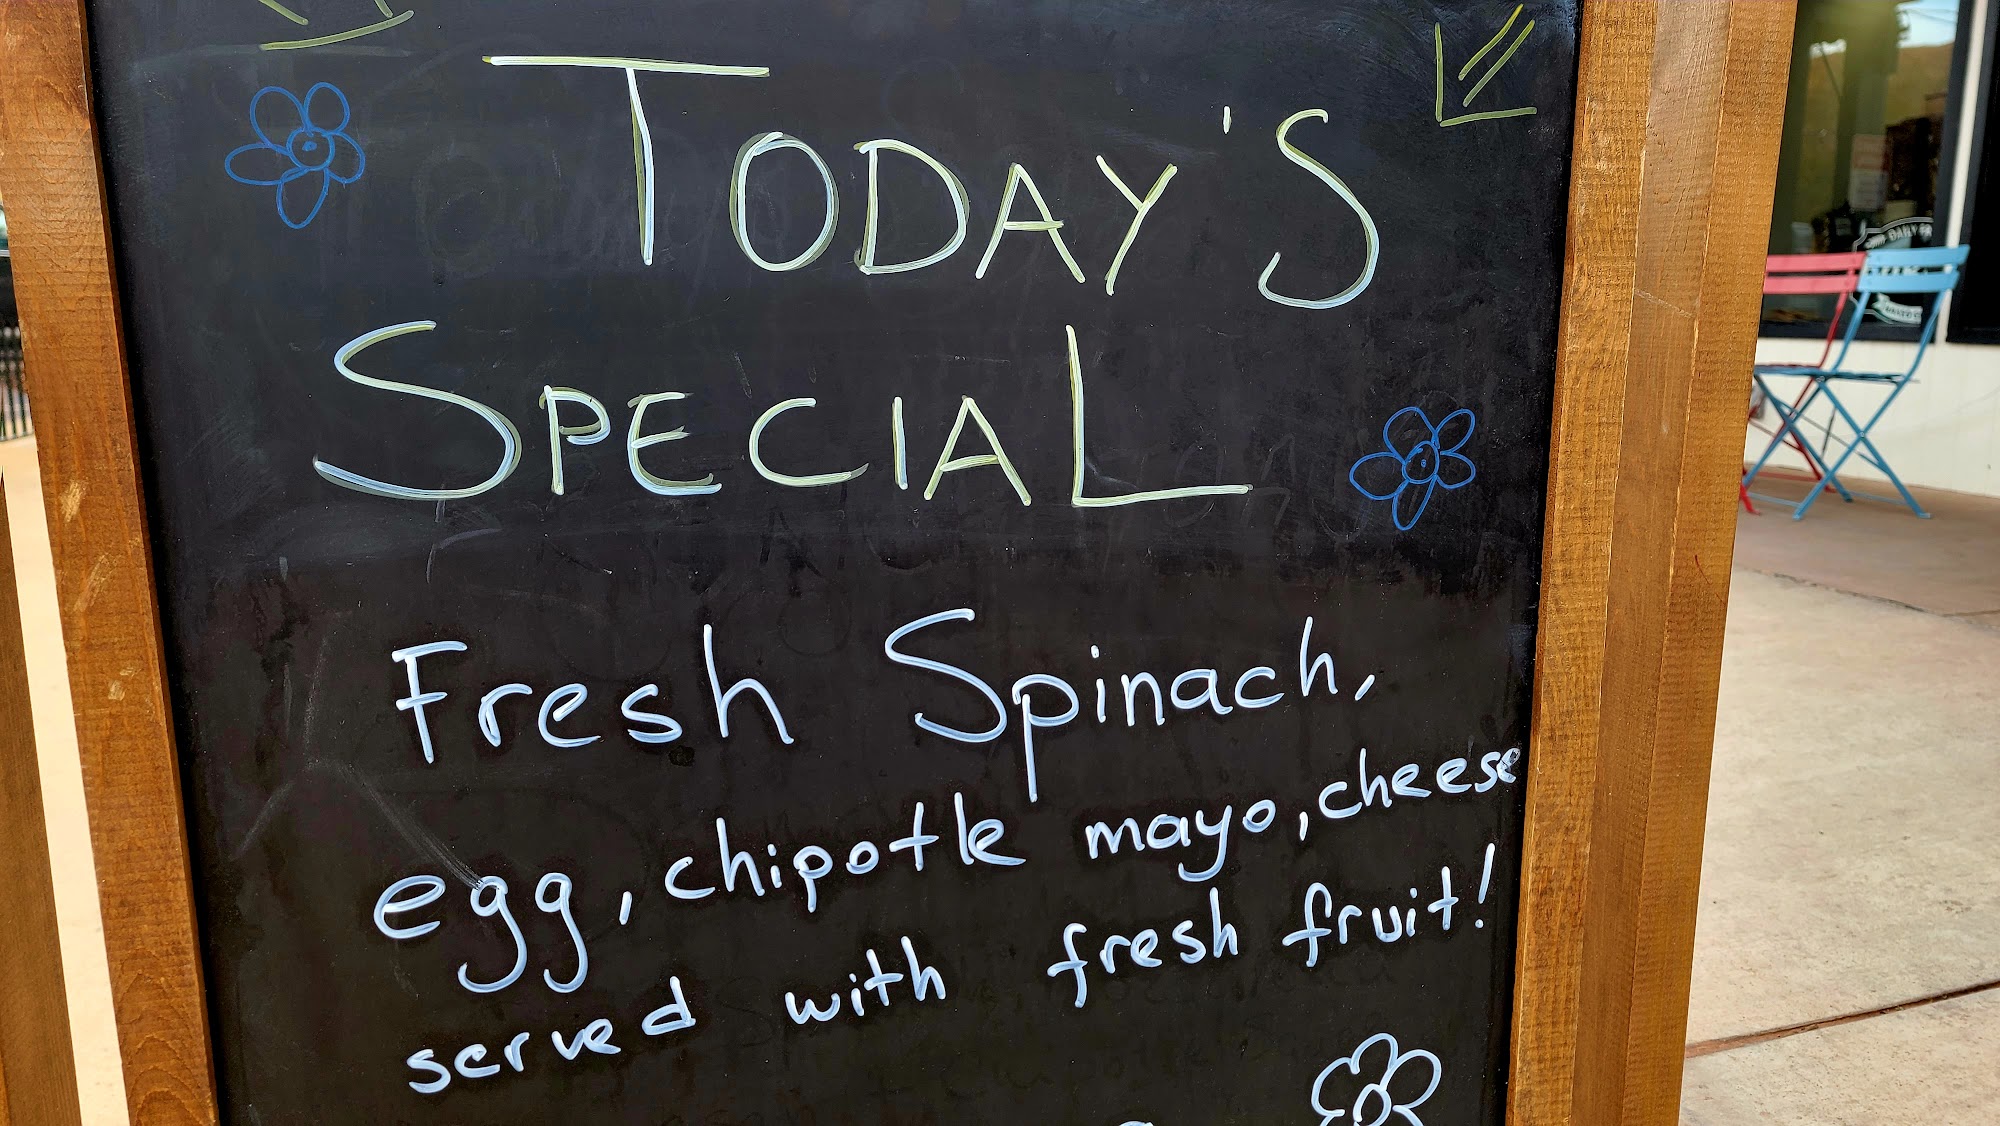 TODAY'S
SPECIAL
Fresh Spinach,
egg, chipotle mayo, cheese
served with fresh fruit!
DAILY